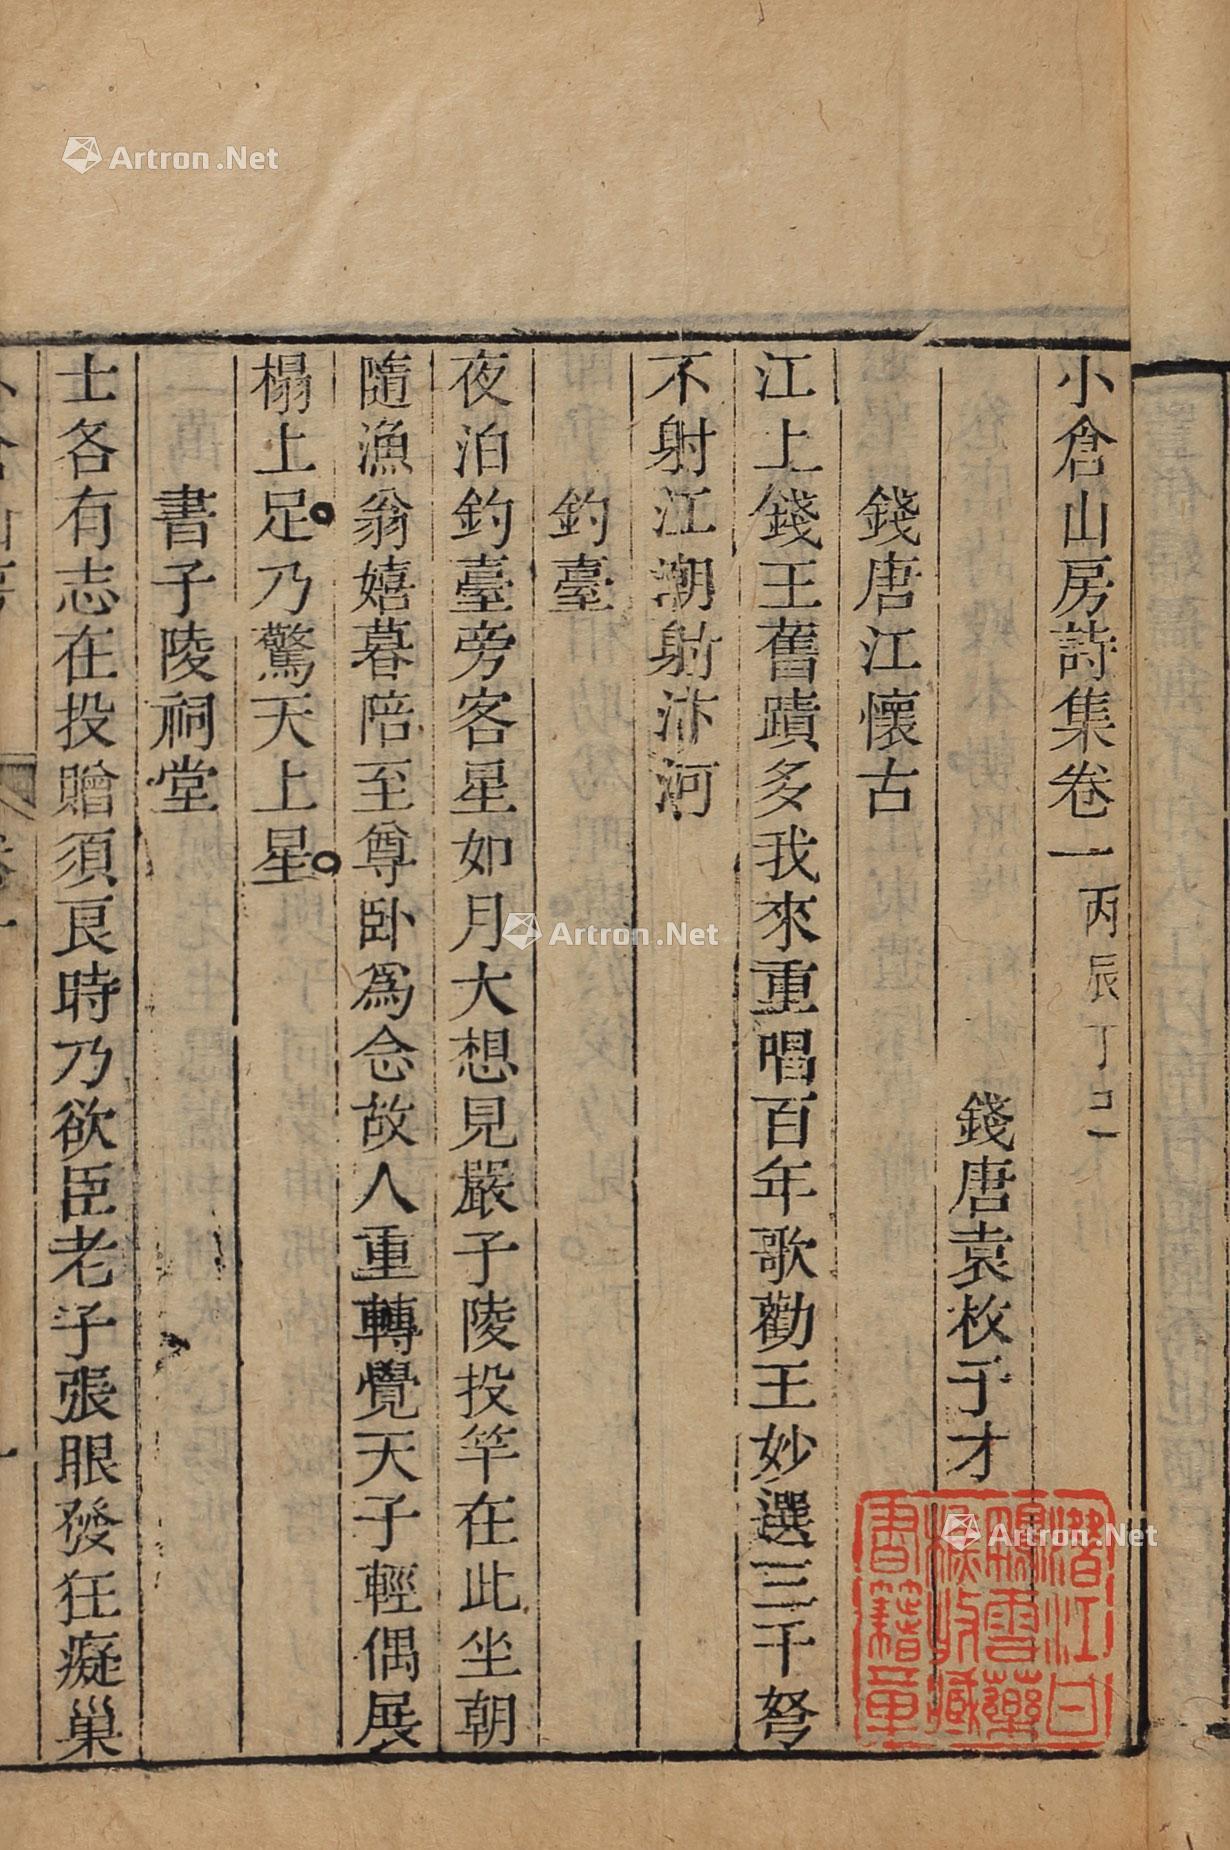 小倉山房詩集卷一 丙辰丁巳
錢唐袁枚子才
錢唐江懷古
江上錢王舊蹟多我來重唱百年歌勸王妙選三千弩
不射江潮射汴河
釣臺
夜泊釣臺旁客星如月大想見嚴子陵投竿在此坐朝
隨漁翁嬉暮陪至尊卧爲念故人重轉覺天子輕偶展
榻上足乃驚天上星
書子陵祠堂
士各有志在投贈須良時乃欲臣老子張眼發狂癡巢
潛江甘
鵬雲藥
樵收藏
書籍章
Artron.Net
Artron.Net
Artron.Net